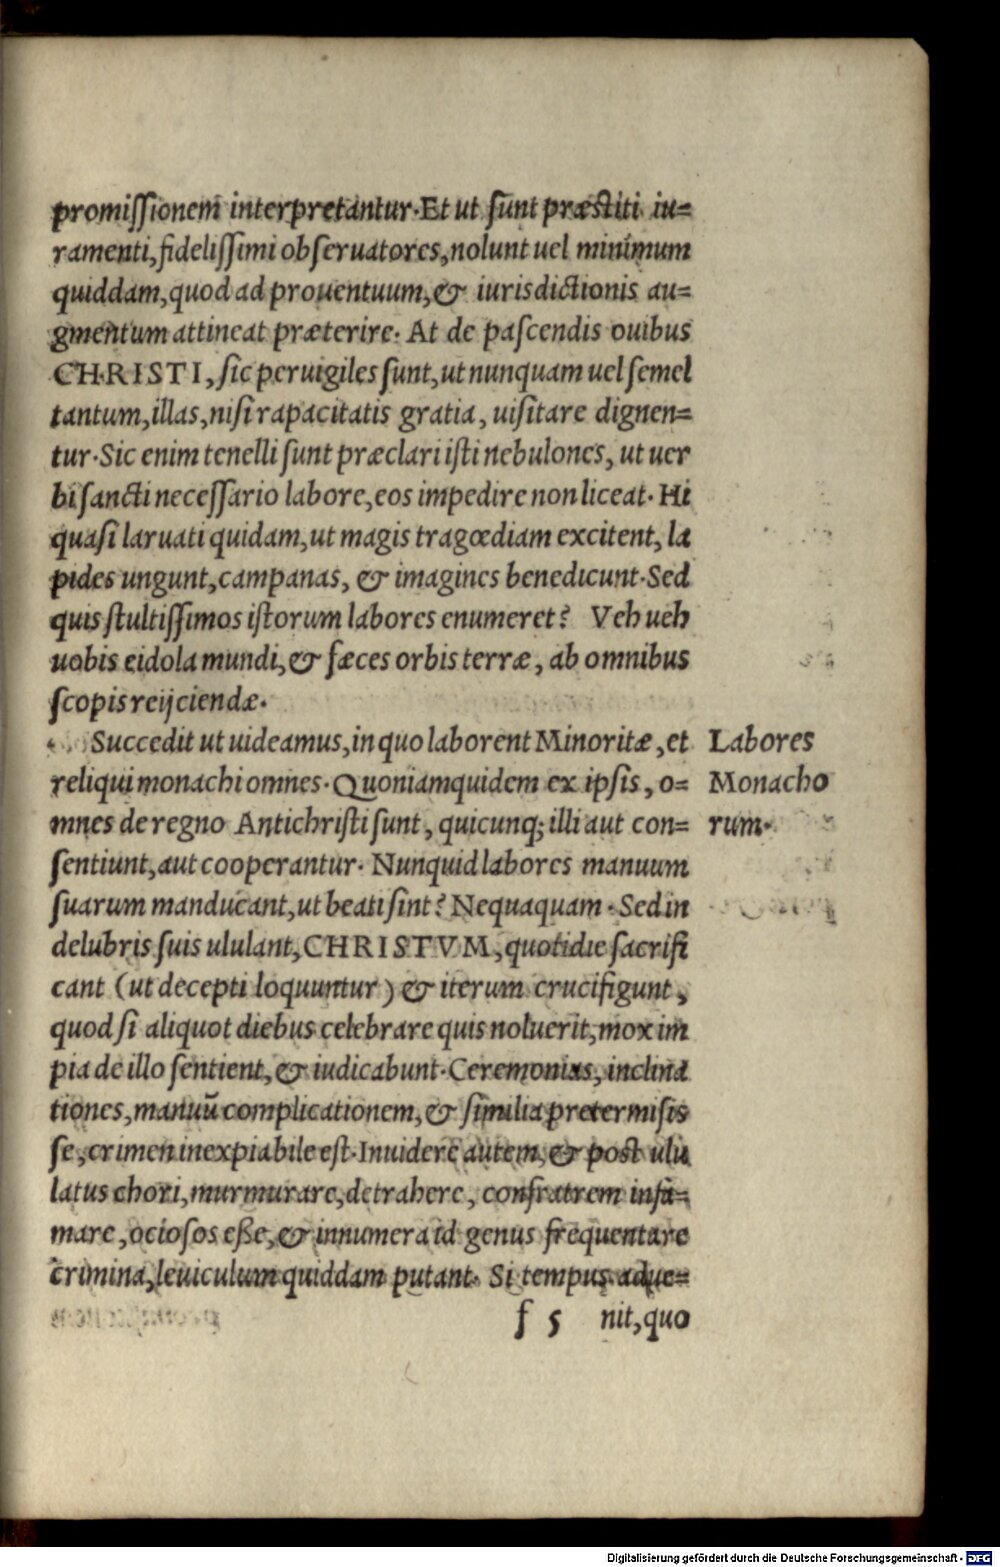 promiſſionem interpretantur. Et ut ſunt præſtiti iu=
ramenti, fideliſſimi obſeruatores, nolunt uel minimum
quiddam, quod ad prouentuum, & iurisdictionis au=
gmentum attineat præterire. At de paſcendis ouibus
CHRISTI, ſic peruigiles ſunt, ut nunquam uel ſemel
tantum, illas, niſi rapacitatis gratia, uiſitare dignen=
tur. Sic enim tenelli ſunt præclari iſti nebulones, ut uer
bi ſancti neceſſario labore, eos impedire non liceat. Hi
quaſi laruati quidam, ut magis tragœdiam excitent, la
pides ungunt, campanas, & imagines benedicunt. Sed
quis ſtultiſſimos iſtorum labores enumeret? Veh ueh
uobis eidola mundi, & fæces orbis terræ, ab omnibus
ſcopis reijciendæ.
Succedit ut uideamus, in quo laborent Minoritæ, et
Labores
reliqui monachi omnes. Quoniamquidem ex ipſis, o=
Monacho
mnes de regno Antichriſti ſunt, quicunq; illi aut con=
rum.
ſentiunt, aut cooperantur. Nunquid labores manuum
ſuarum manducant, ut beati ſint? Nequaquam. Sed in
delubris ſuis ululant, CHRISTVM, quotidie ſacrifi
cant (ut decepti loquuntur) & iterum crucifigunt,
quod ſi aliquot diebus celebrare quis noluerit, mox im
pia de illo ſentient, & iudicabunt. Ceremonias, inclina
tiones, manuū complicationem, & ſimilia pretermiſiſ
ſe, crimen inexpiabile eſt. Inuidere autem, & post ulu
latus chori, murmurare, detrahere, confratrem infa=
mare, ocioſos eſſe, & innumera id genus frequentare
crimina, leuiculum quiddam putant. Si tempus adue=
f 5 nit, quo
Digitalisierung gefördert durch die Deutsche Forschungsgemeinschaft - DFG